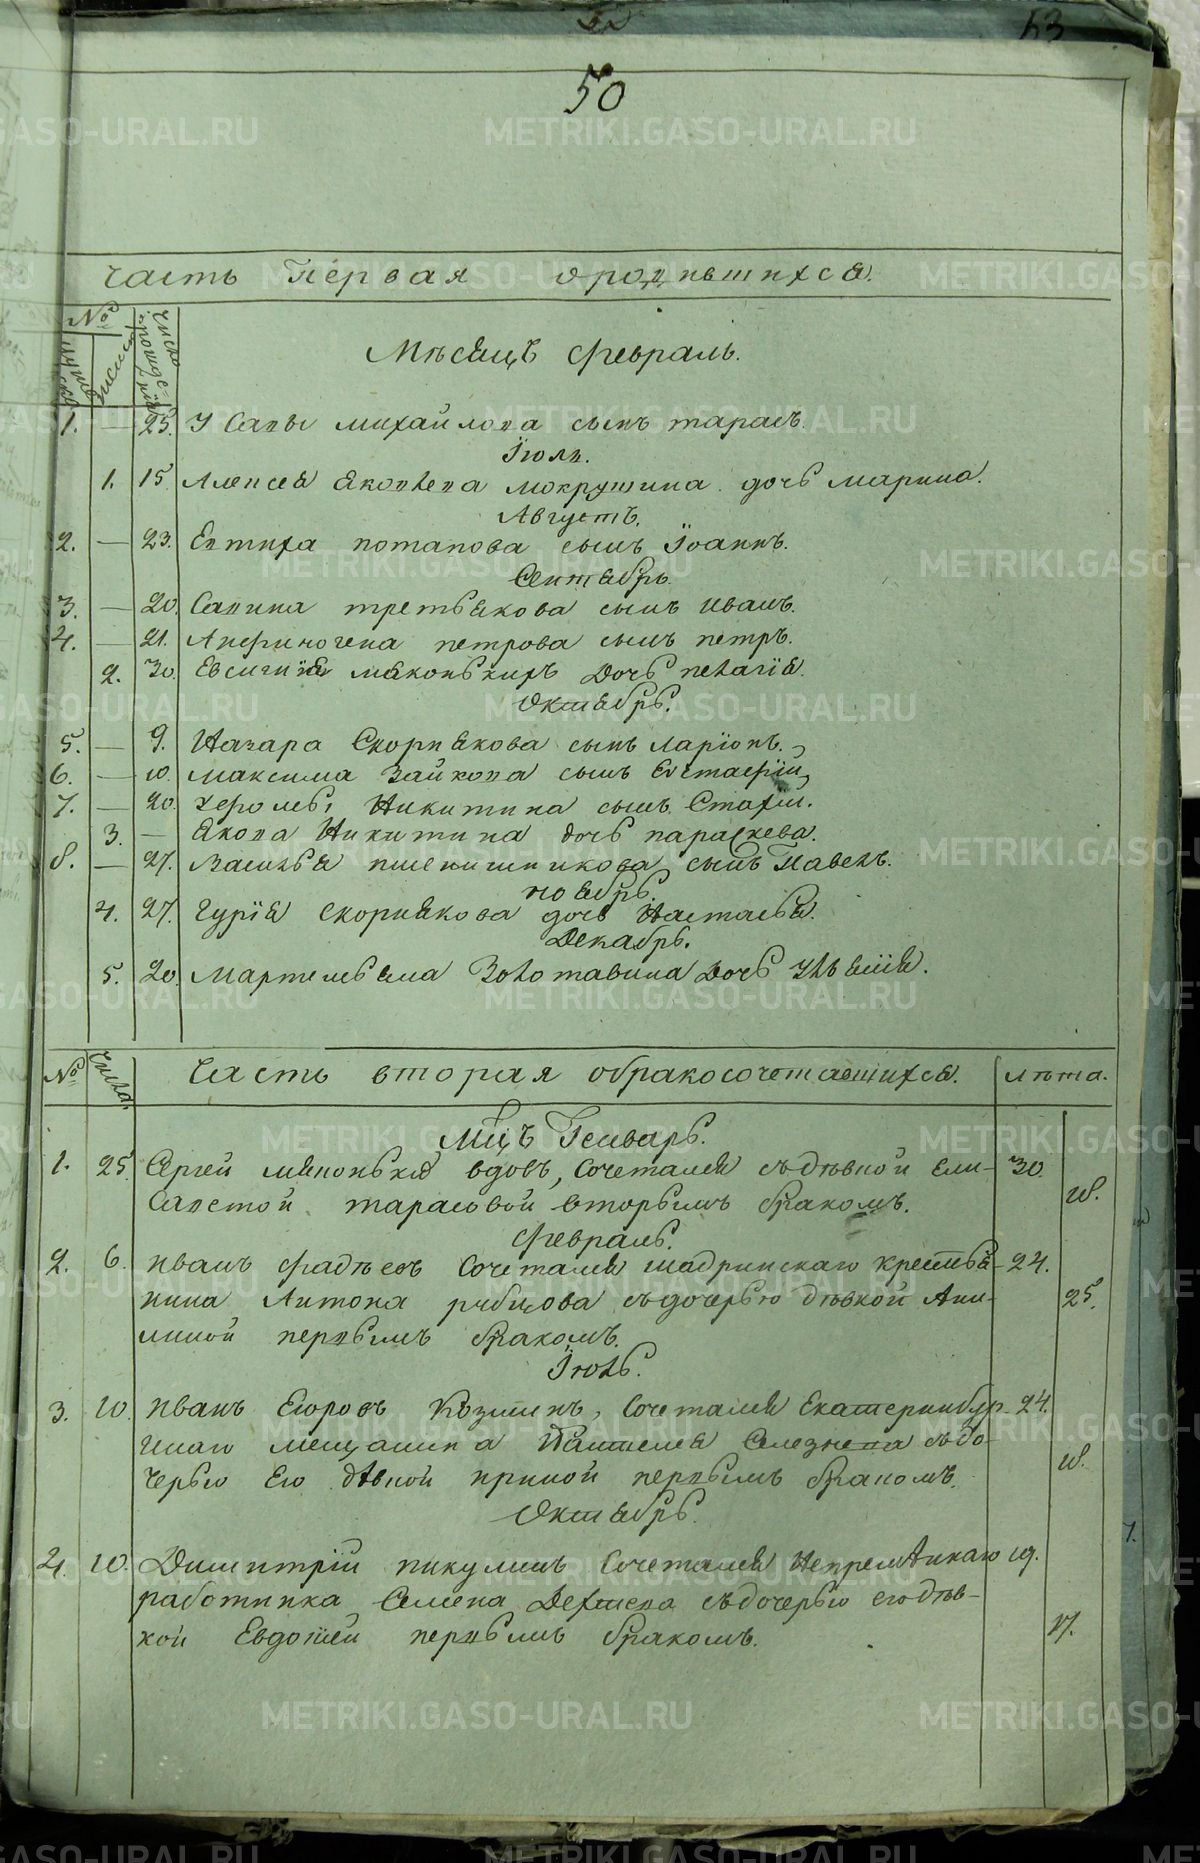 53
50
Часть Первая ородившихся.
№
число рожде-
нія
Мѣсяцъ февраль.
1. — 25. У Савы михайлова сынъ тарасъ.
Іюль.
1. 15 Алексея Яковлева мокрушина дочь марина.
Августъ.
2. — 23. Евтиха потапова сынъ Іоаннъ.
Сентябрь.
3. — 20. Савина третьякова сынъ иванъ.
4. — 21. Анфиногена петрова сынъ петръ.
2. 30. Евсигнія дочь пелагія.
Октябрь.
5. — 9. Назара Скорнякова сынъ ларіонъ.
6. — 10. Максима Зайкова сынъ Евстафій,
7. — 20. Никитина сынъ Стахій.
3. — Якова Никитина дочь параскева.
8. — 27. Василья пшенишникова сынъ Павелъ.
ноябрь.
4. 27. Гурія скорнякова дочь Настасья.
Декабрь.
5. 20. Мартемьяна Золотавина Дочь Уліянія.
№ Числа. Часть вторая обракосочетавшихся. лѣта.
Мцъ Генварь.
1. 25 Сергей вдовъ, сочетался съдѣвкой Ели- 30.
саветой тарасовой вторымъ бракомъ. 18.
февраль.
2. 6. иванъ фадѣевъ Сочетался шадринскаго крестья- 24.
нина Антона рябцова съдочерью дѣвкой Аки- 25.
линой первымъ бракомъ.
Іюль.
3. 10. иванъ Егоровъ Козминъ, Сочетался Екатеринбур- 24.
гскаго мещанина Пантелея Селезнева съдо-
черью Его дѣвкой ириной первымъ бракомъ. 18.
Октябрь.
4. 10. Димитрій пикулинъ Сочетался Непремѣннаго 19.
работника Семена съдочерью егодѣв-
кой Евдокіей первымъ бракомъ. 17.
METRIKI.GASO-URAL.RU